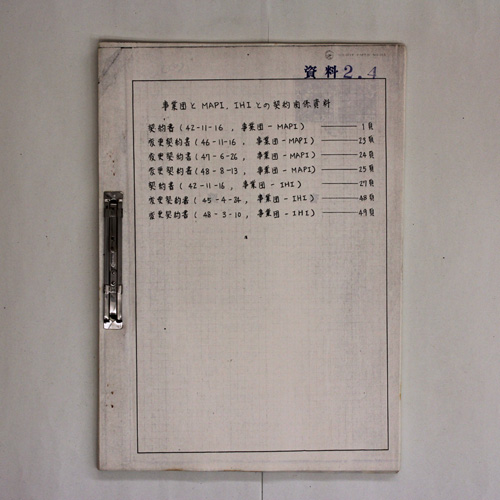 資料2.4
事業団と MAPI、IHI との契約関係資料
契約書 (42-11-16 , 事業団-MAPI) ——— 1頁
変更契約書 (46-11-16 , 事業団-MAPI) ——— 23頁
変更契約書 (47-6-26 , 事業団-MAPI) ——— 24頁
変更契約書 (48-8-13 , 事業団-MAPI) ——— 25頁
契約書 (42-11-16 , 事業団-IHI) ——— 27頁
変更契約書 (45-4-24 , 事業団-IHI) ——— 48頁
変更契約書 (48-3-10 , 事業団-IHI) ——— 49頁